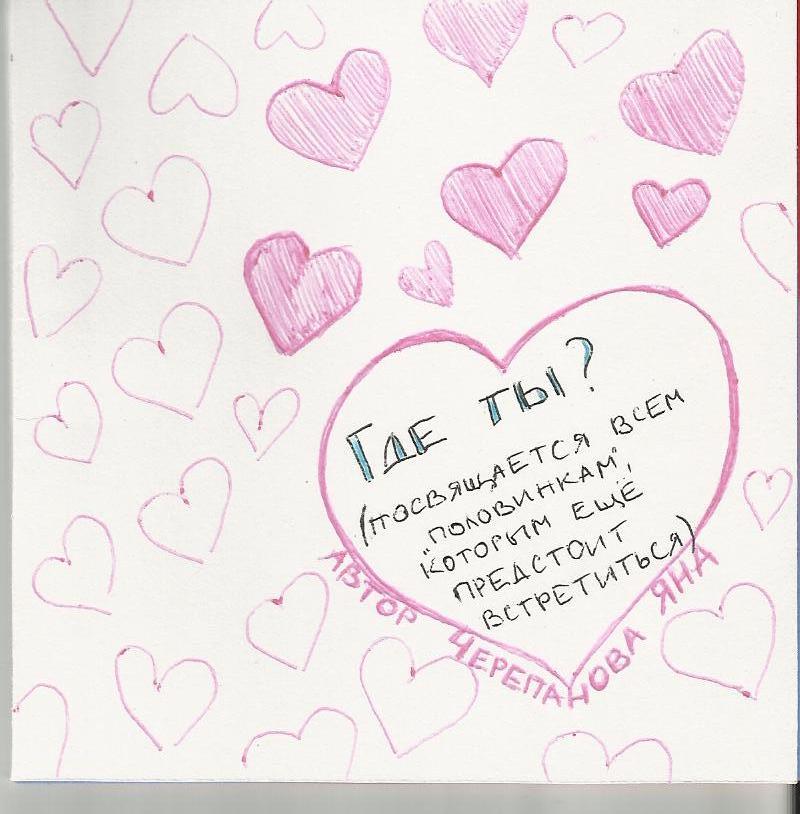 Где ты?
(посвящается всем
„половинкам",
которым ещё
предстоит
встретиться)
Автор Черепанова Яна